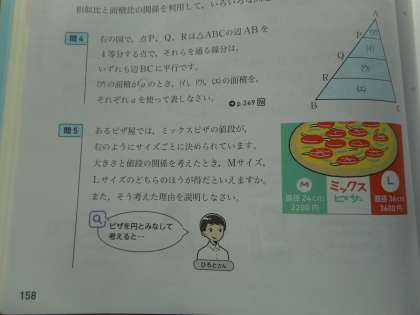 相似比と面積比の関係を利用して、いろいろな
問4 右の図で、点P、Q、Rは△ABCの辺ABを
4等分する点で、それらを通る線分は、
いずれも辺BCに平行です。
(ア)の面積がaのとき、(イ)、(ウ)、(エ)の面積を、
それぞれaを使って表しなさい。
p.269
A
P
(ア)
Q
(イ)
R
(ウ)
(エ)
B
C
問5 あるピザ屋では、ミックスピザの値段が、
右のようにサイズごとに決められています。
大きさと値段の関係を考えたとき、Mサイズ、
Lサイズのどちらのほうが得だといえますか。
また、そう考えた理由を説明しなさい。
M
直径24cm
2200円
ミックス
ピザ
L
直径36cm
3600円
ピザを円とみなして
考えると…
ひろとさん
158